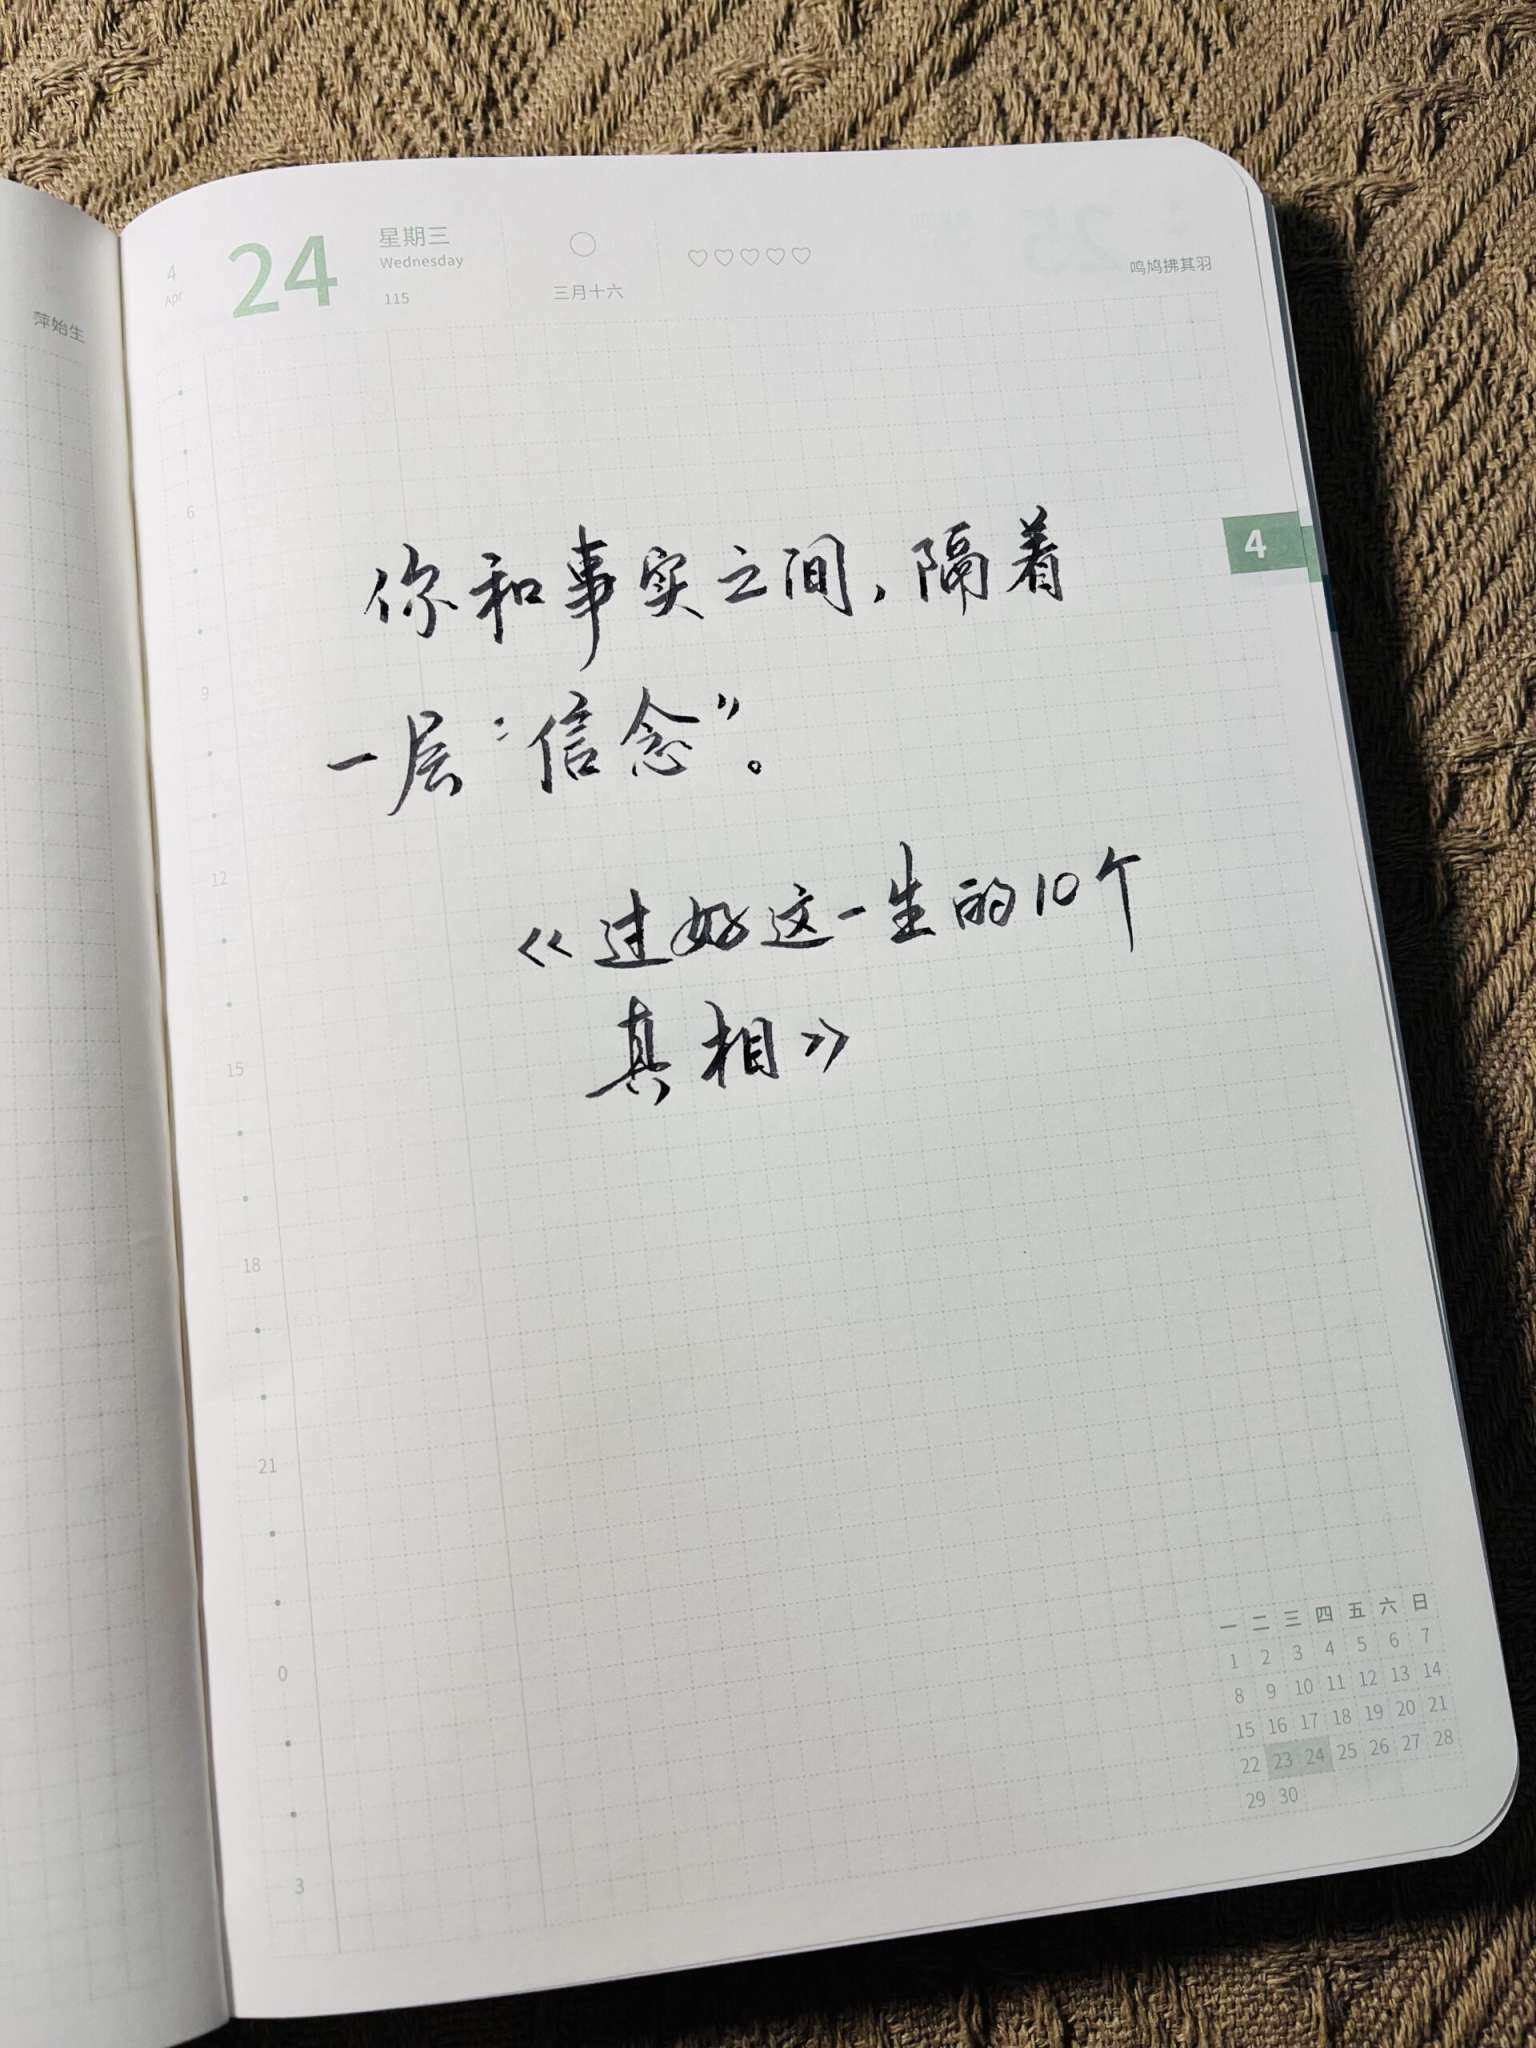 萍始生
4
Apr
24
星期三
Wednesday
115
三月十六
鸣鸠拂其羽
4
你和事实之间，隔着
一层“信念”。
《过好这一生的10个
真相》
6
9
12
15
18
21
0
3
一 二 三 四 五 六 日
1 2 3 4 5 6 7
8 9 10 11 12 13 14
15 16 17 18 19 20 21
22 23 24 25 26 27 28
29 30